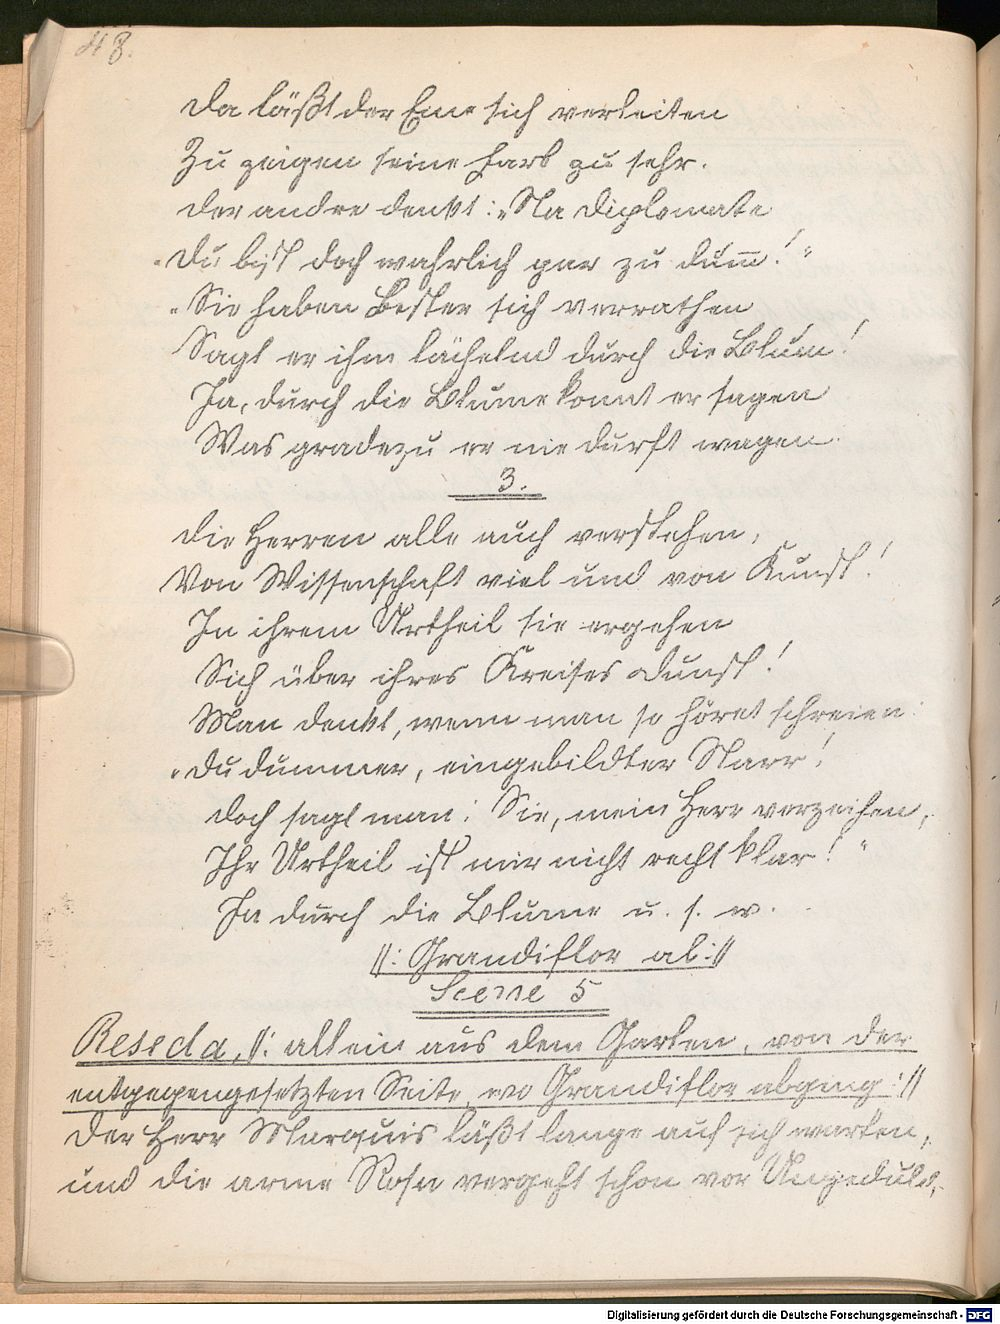 48.
Da läßt der Eine sich verleiten
Zu zeigen seine Farb zu sehr.
Der andre denkt: „Na Diplomate
„Du bist doch wahrlich gar zu dum̅!“
„Sie haben Bester sich verrathen
Sagt er ihm lächelnd durch die Blum!
Ja, durch die Blume konnt er sagen
Was gradezu er nie durft wagen.
3.
Die Herren alle auch verstehen,
Von Wissenschaft viel und von Kunst!
In ihrem Urtheil sie ergehen
Sich über ihres Kreises Dunst!
Man denkt, wenn man so höret schreien:
„Du dummer, eingebildter Narr!
Doch sagt man: Sie, mein Herr verzeihen,
Ihr Urtheil ist mir nicht recht klar!“
Ja durch die Blume u. s. w.
//: Grandiflor ab ://
Scene 5
Reseda, //: allein aus dem Garten, von der
entgegengesetzten Seite, wo Grandiflor abging ://
Der Herr Marquis läßt lange auf sich warten,
und die arme Rosa vergeht schon vor Ungeduld,
Digitalisierung gefördert durch die Deutsche Forschungsgemeinschaft - DFG